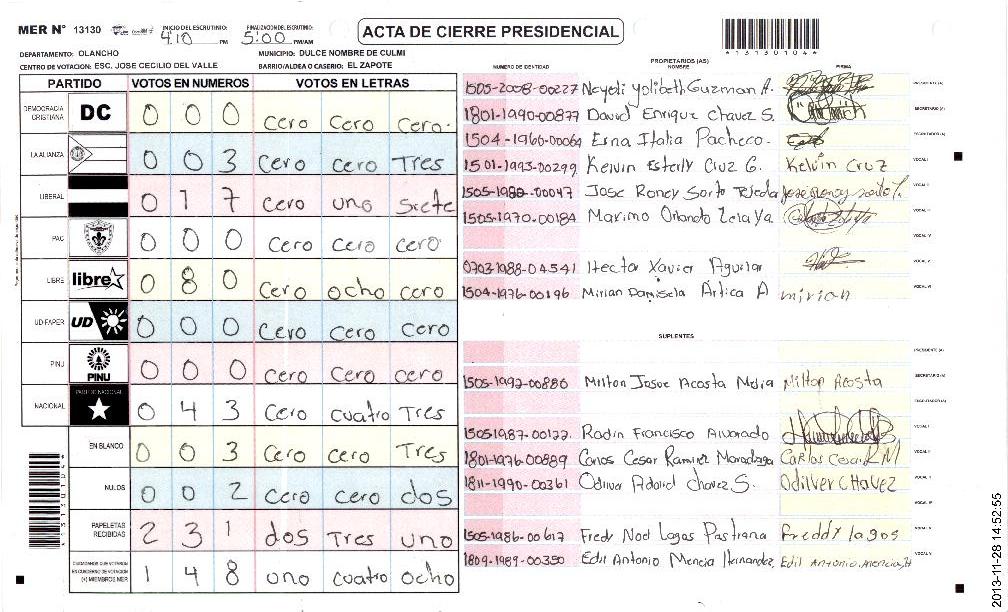 MER Nº 13130 INICIO DEL ESCRUTINIO: 4:10 PM FINALIZACION DEL ESCRUTINIO: 5:00 PM/AM ACTA DE CIERRE PRESIDENCIAL
*1313010 4*
DEPARTAMENTO: OLANCHO MUNICIPIO: DULCE NOMBRE DE CULMI
CENTRO DE VOTACION: ESC. JOSE CECILIO DEL VALLE BARRIO/ALDEA O CASERIO: EL ZAPOTE
PARTIDO VOTOS EN NUMEROS VOTOS EN LETRAS
DEMOCRACIA CRISTIANA DC 0 0 0 cero cero cero.
LA ALIANZA 0 0 3 cero cero Tres
LIBERAL 0 1 7 cero uno siete
PAC 0 0 0 cero cero cero
LIBRE libre 0 8 0 cero ocho cero
UD FAPER UD 0 0 0 cero cero cero
PINU PINU 0 0 0 cero cero cero
NACIONAL PARTIDO NACIONAL 0 4 3 cero cuatro Tres
EN BLANCO 0 0 3 cero cero Tres
NULOS 0 0 2 cero cero dos
PAPELETAS RECIBIDAS 2 3 1 dos Tres uno
CIUDADANOS QUE VOTARON EN CUADERNO DE VOTACION (+) MIEMBROS MER 1 4 8 uno cuatro ocho
PROPIETARIOS (AS)
NUMERO DE IDENTIDAD NOMBRE FIRMA
1505-2008-00227 Guzman A. PRESIDENTE (A)
1801-1990-00877 David Enrique Chavez S. SECRETARIO (A)
1504-1966-00064 Erna Italia Pacheco. ESCRUTADOR (A)
1501-1993-00299 Kelvin Esterly Cruz G. Kelvin Cruz VOCAL I
1505-1980-00047 Jose Roney Sarto VOCAL II
1505-1970-00184 Maximo Orlando Zelaya VOCAL III
VOCAL IV
0703-1988-04541 Hector Xavier Aguilar VOCAL V
1504-1976-00196 Mirian Damisela Artica A mirian VOCAL VI
SUPLENTES
PRESIDENTE (A)
1505-1992-00886 Milton Josue Acosta Mejia Milton Acosta SECRETARIO (A)
ESCRUTADOR (A)
1505-1987-00122. Rodin Francisco Alvarado VOCAL I
1801-1976-00889 Carlos Cesar Ramirez Carlos Cesar R M VOCAL II
1811-1990-00361 Chavez S. Odilver Chavez VOCAL III
VOCAL IV
1505-1986-00617 Fredy Noel Lagos Pastrana freddy lagos VOCAL V
1809-1989-00350 Edil Antonio Mencia Hernandez Edil Antonio Mencia H VOCAL VI
2013-11-28 14:52:55